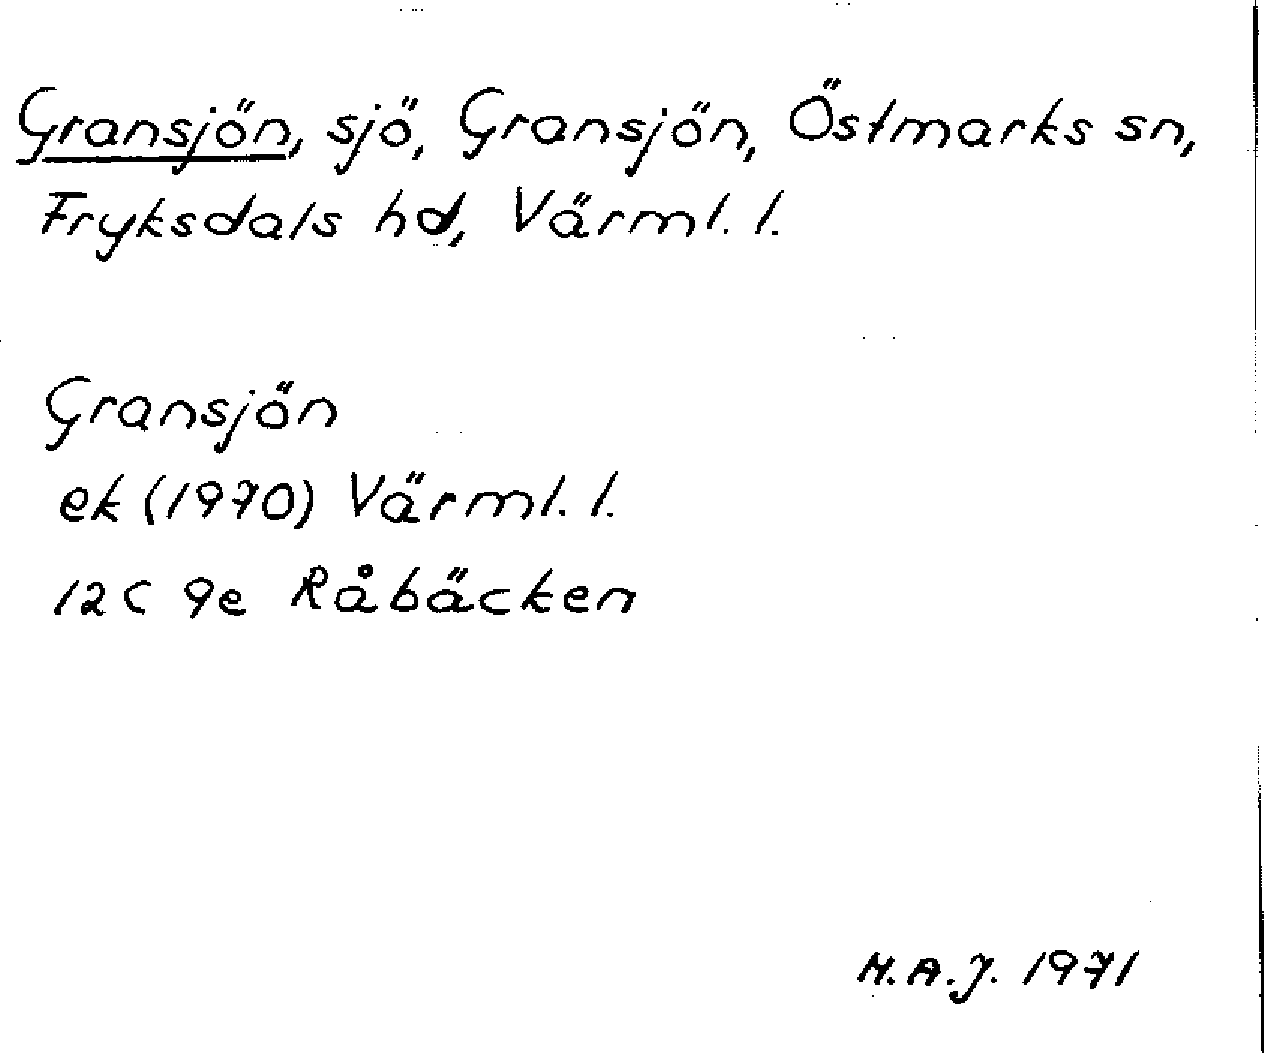 Gransjön, sjö, Gransjön, Östmarks sn,
Fryksdals hd, Värml. l.
Gransjön
ek (1970) Värml. l.
12C 9e Råbäcken
M.A.J. 1971